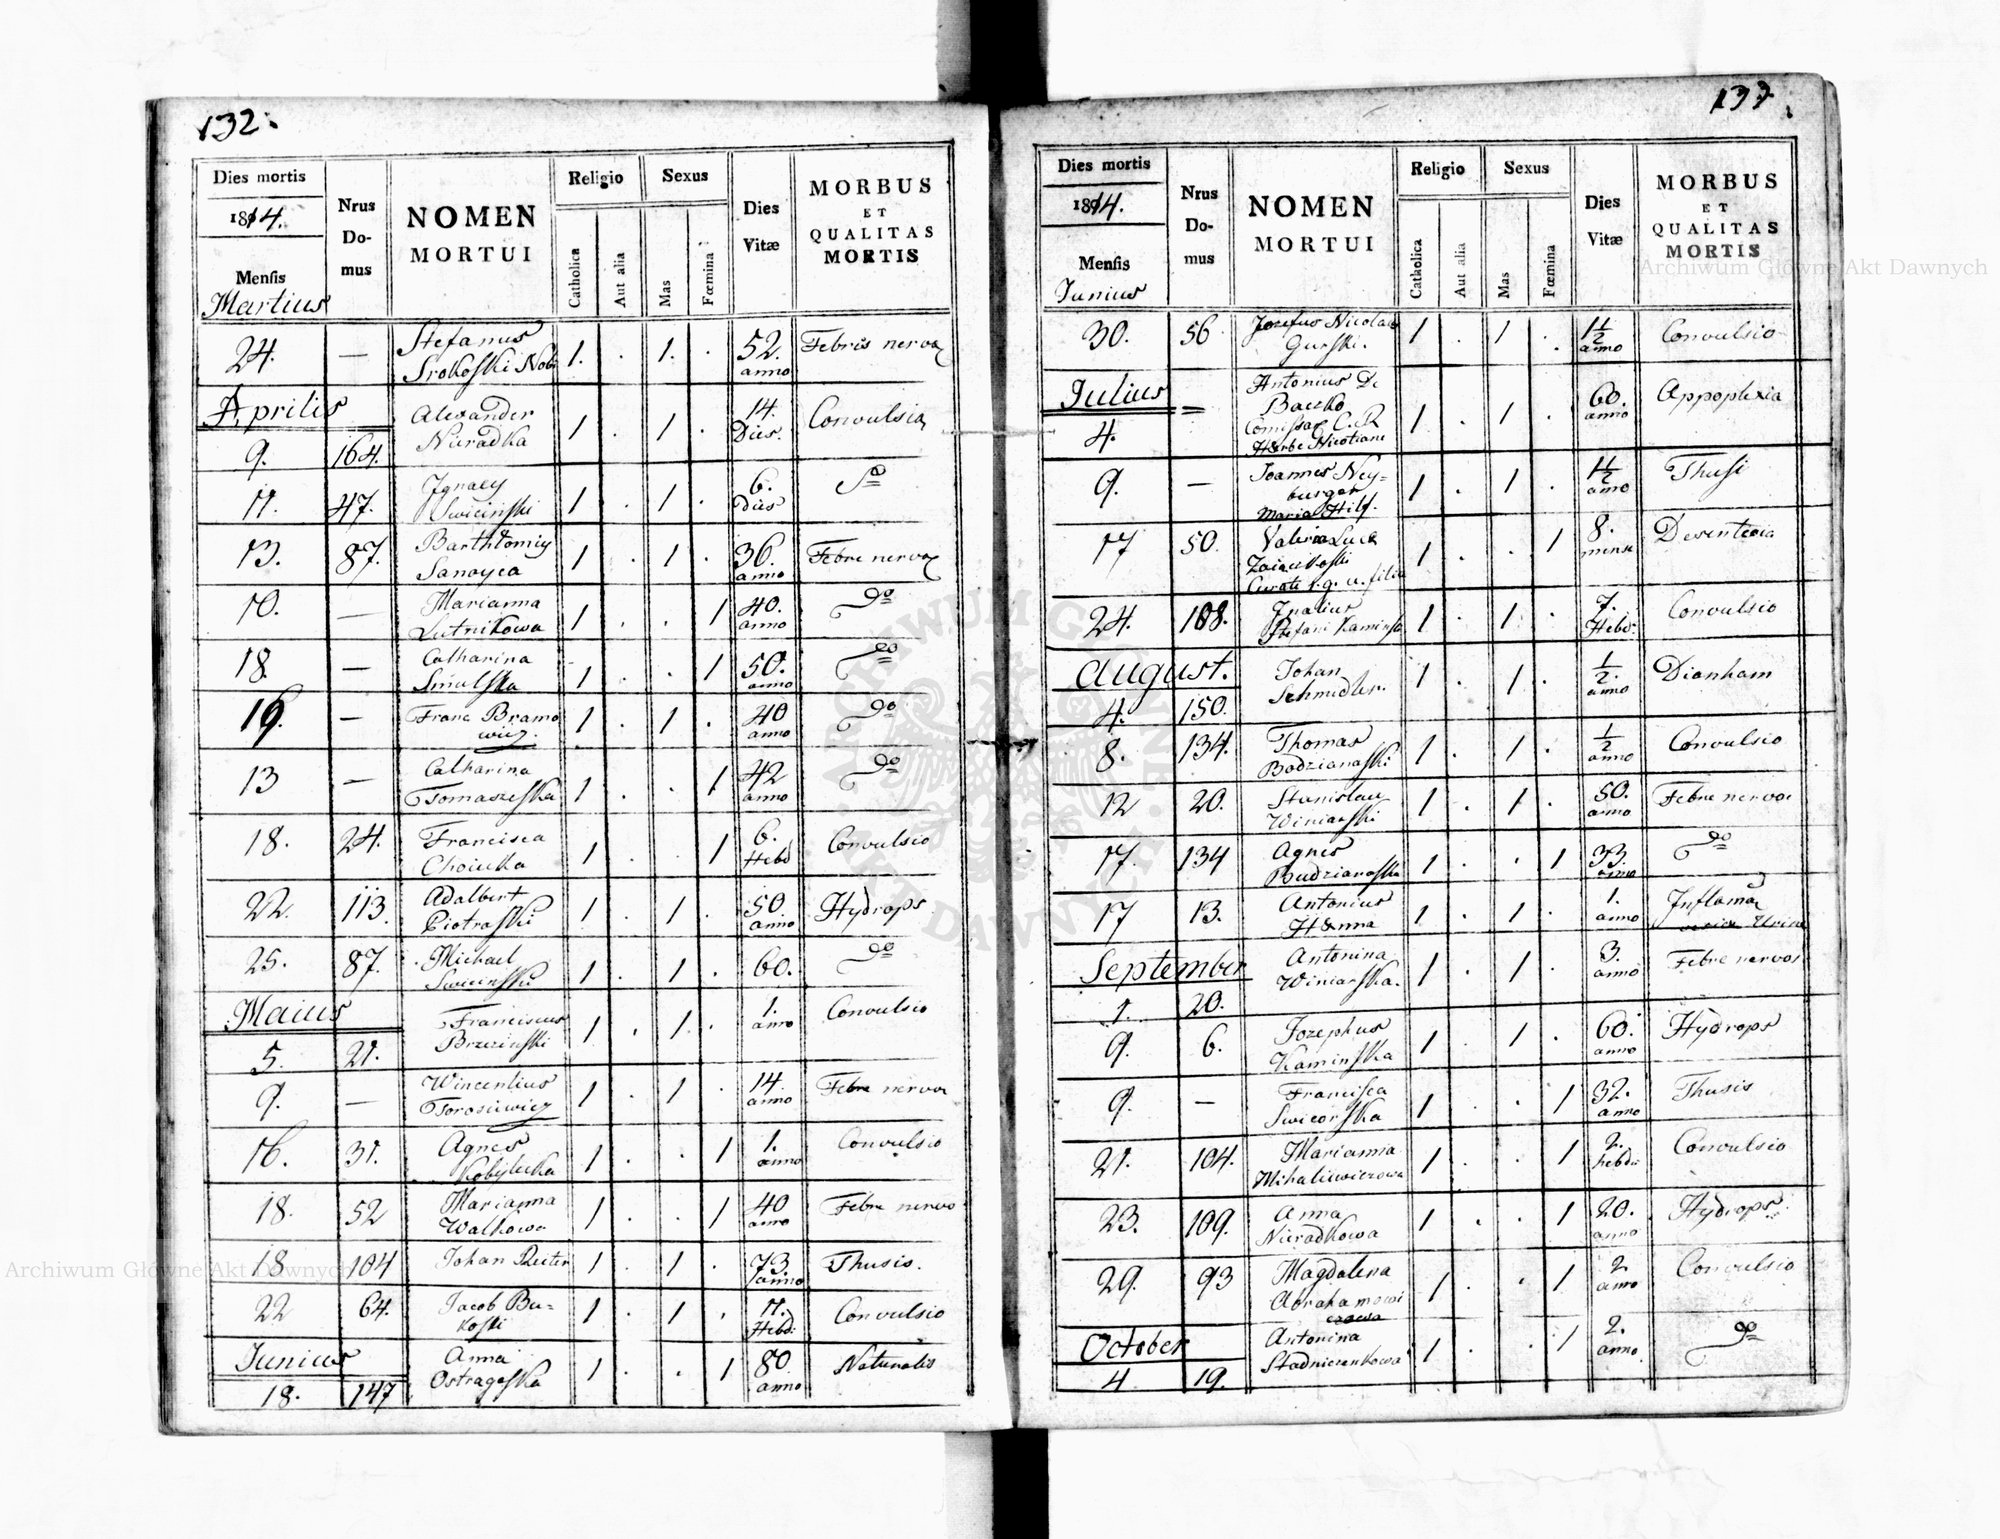 132.
Dies mortis
1814.
Mensis
Martius
Nrus
Do-
mus
NOMEN
MORTUI
Religio
Catholica
Aut alia
Sexus
Mas
Fœmina
Dies
Vitæ
MORBUS
ET
QUALITAS
MORTIS
24. — Stefanus 1. . 1. . 52. Febris nervo
Srokoski Nob anno
Aprilis Alexander 1 . 1 . 14. Convulsia
9. 164. Nieradka Dies.
11. 47. Ignacy 1 . 1 . 6.
Swiecinski Dies
13. 87. Barthlomiy 1 . 1 . 36. Febre nervo
Sanoyca anno
10. — Marianna 1 . . 1 40. do
Lutnikowa anno
18. — Catharina 1 . . 1 50. do
Smulska anno
16. — Franc Bramo 1 . 1 . 40 do
wicz. anno
13 — Catharina 1 . . 1 42 do
Tomaszeska anno
18. 24. Francisca 1 . . 1 6. Convulsio
Choiecka Hebd
22. 113. Adalbert 1 . 1 . 50. Hydrops.
Piotraski anno
25. 87. Michael 1 . 1 . 60. do
Swiecinski
Maius Franciscus 1 . 1 . 1. Convulsio
5. 21. Brzezinski anno
9. — Wincentius 1 . 1 . 14. Febre nervo
Torosiewicz anno
16. 31. Agnes 1 . . 1 1. Convulsio
Kobylecka anno
18. 52 Marianna 1 . . 1 40 Febre nervo
Walkowa anno
18 104 Johan Reiter 1 . 1 . 73. Thusis.
anno
22 64. Jacob Bu- 1 . 1 . 11. Convulsio
koski Hebd:
Junius Anna 1 . . 1 80. Naturalis
18. 147 Ostragoska anno
133.
Dies mortis
1814.
Mensis
Junius
Nrus
Do-
mus
NOMEN
MORTUI
Religio
Catholica
Aut alia
Sexus
Mas
Fœmina
Dies
Vitæ
MORBUS
ET
QUALITAS
MORTIS
30. 56 Jozefus Nicolaus 1 . 1 . 1 1/2 Convulsio
Gurski. anno
Julius — Antonius De 1 . 1 . 60. Appoplexia
4. Baczko anno
Comissar C. R
Herbe Nicotiane
9. — Joannes Ney= 1 . 1 . 1 1/2 Thusi
burger anno
Maria Hilf.
17 50. Valeria Luca 1 . . 1 8. Desenteria
mens
Curati r. g. u. filia
24. 108. Ignatius 1 . 1 . 7. Convulsio
Stefani Kaminsk Hebd.
August. Johan 1 . 1 . 1/2. Dianham
4. 150. Schmidler. anno
8. 134. Thomas 1 . 1 . 1/2 Convulsio
Bodzianoski anno
12 20. Stanislau 1 . 1 . 50. Febre nervo
Winiarski anno
17. 134 Agnes 1 . . 1 33. do
Budzianoska anno
17 13. Antonius 1 . 1 . 1. Inflama
Hanna anno Urina
September Antonina 1 . 1 . 3. Febre nervos
1. 20. Winiarska. anno
9. 6. Jozephus 1 . 1 . 60. Hydrops
Kaminska anno
9. — Francisca 1 . . 1 32. Thusis
Swicorska anno
21. 104. Marianna 1 . . 1 2. Convulsio
Mihaliewiczowa hebd:
23. 109. Anna 1 . . 1 20. Hydrops.
Nieradkowa anno
29. 93 Magdalena 1 . . 1 2 Convulsio
Abrahamowi anno
czowa
October Antonina 1 . . 1 2. do
4 19. Stadniczenkowa anno
Archiwum Główne Akt Dawnych
Archiwum Główne Akt Dawnych
ARCHIWUM GŁÓWNE AKT DAWNYCH